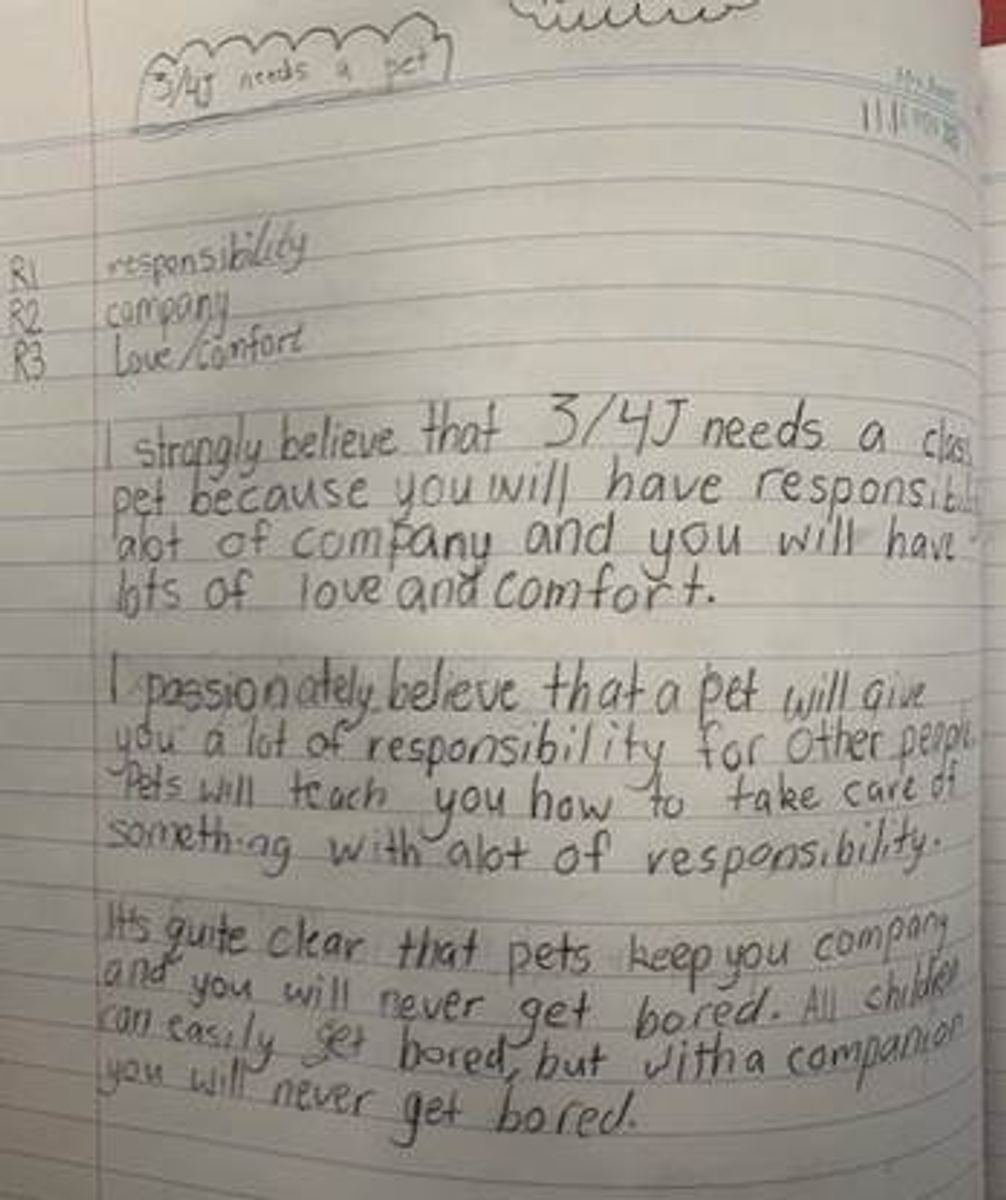 3/4J needs a pet
R1 responsibility
R2 company
R3 Love/comfort
I strongly believe that 3/4J needs a class
pet because you will have responsibi
alot of company and you will have
lots of love and comfort.
I passionately believe that a pet will give
you a lot of responsibility for other people.
Pets will teach you how to take care of
something with alot of responsibility.
It's quite clear that pets keep you company
and you will never get bored. All children
can easily get bored, but with a companion
you will never get bored.